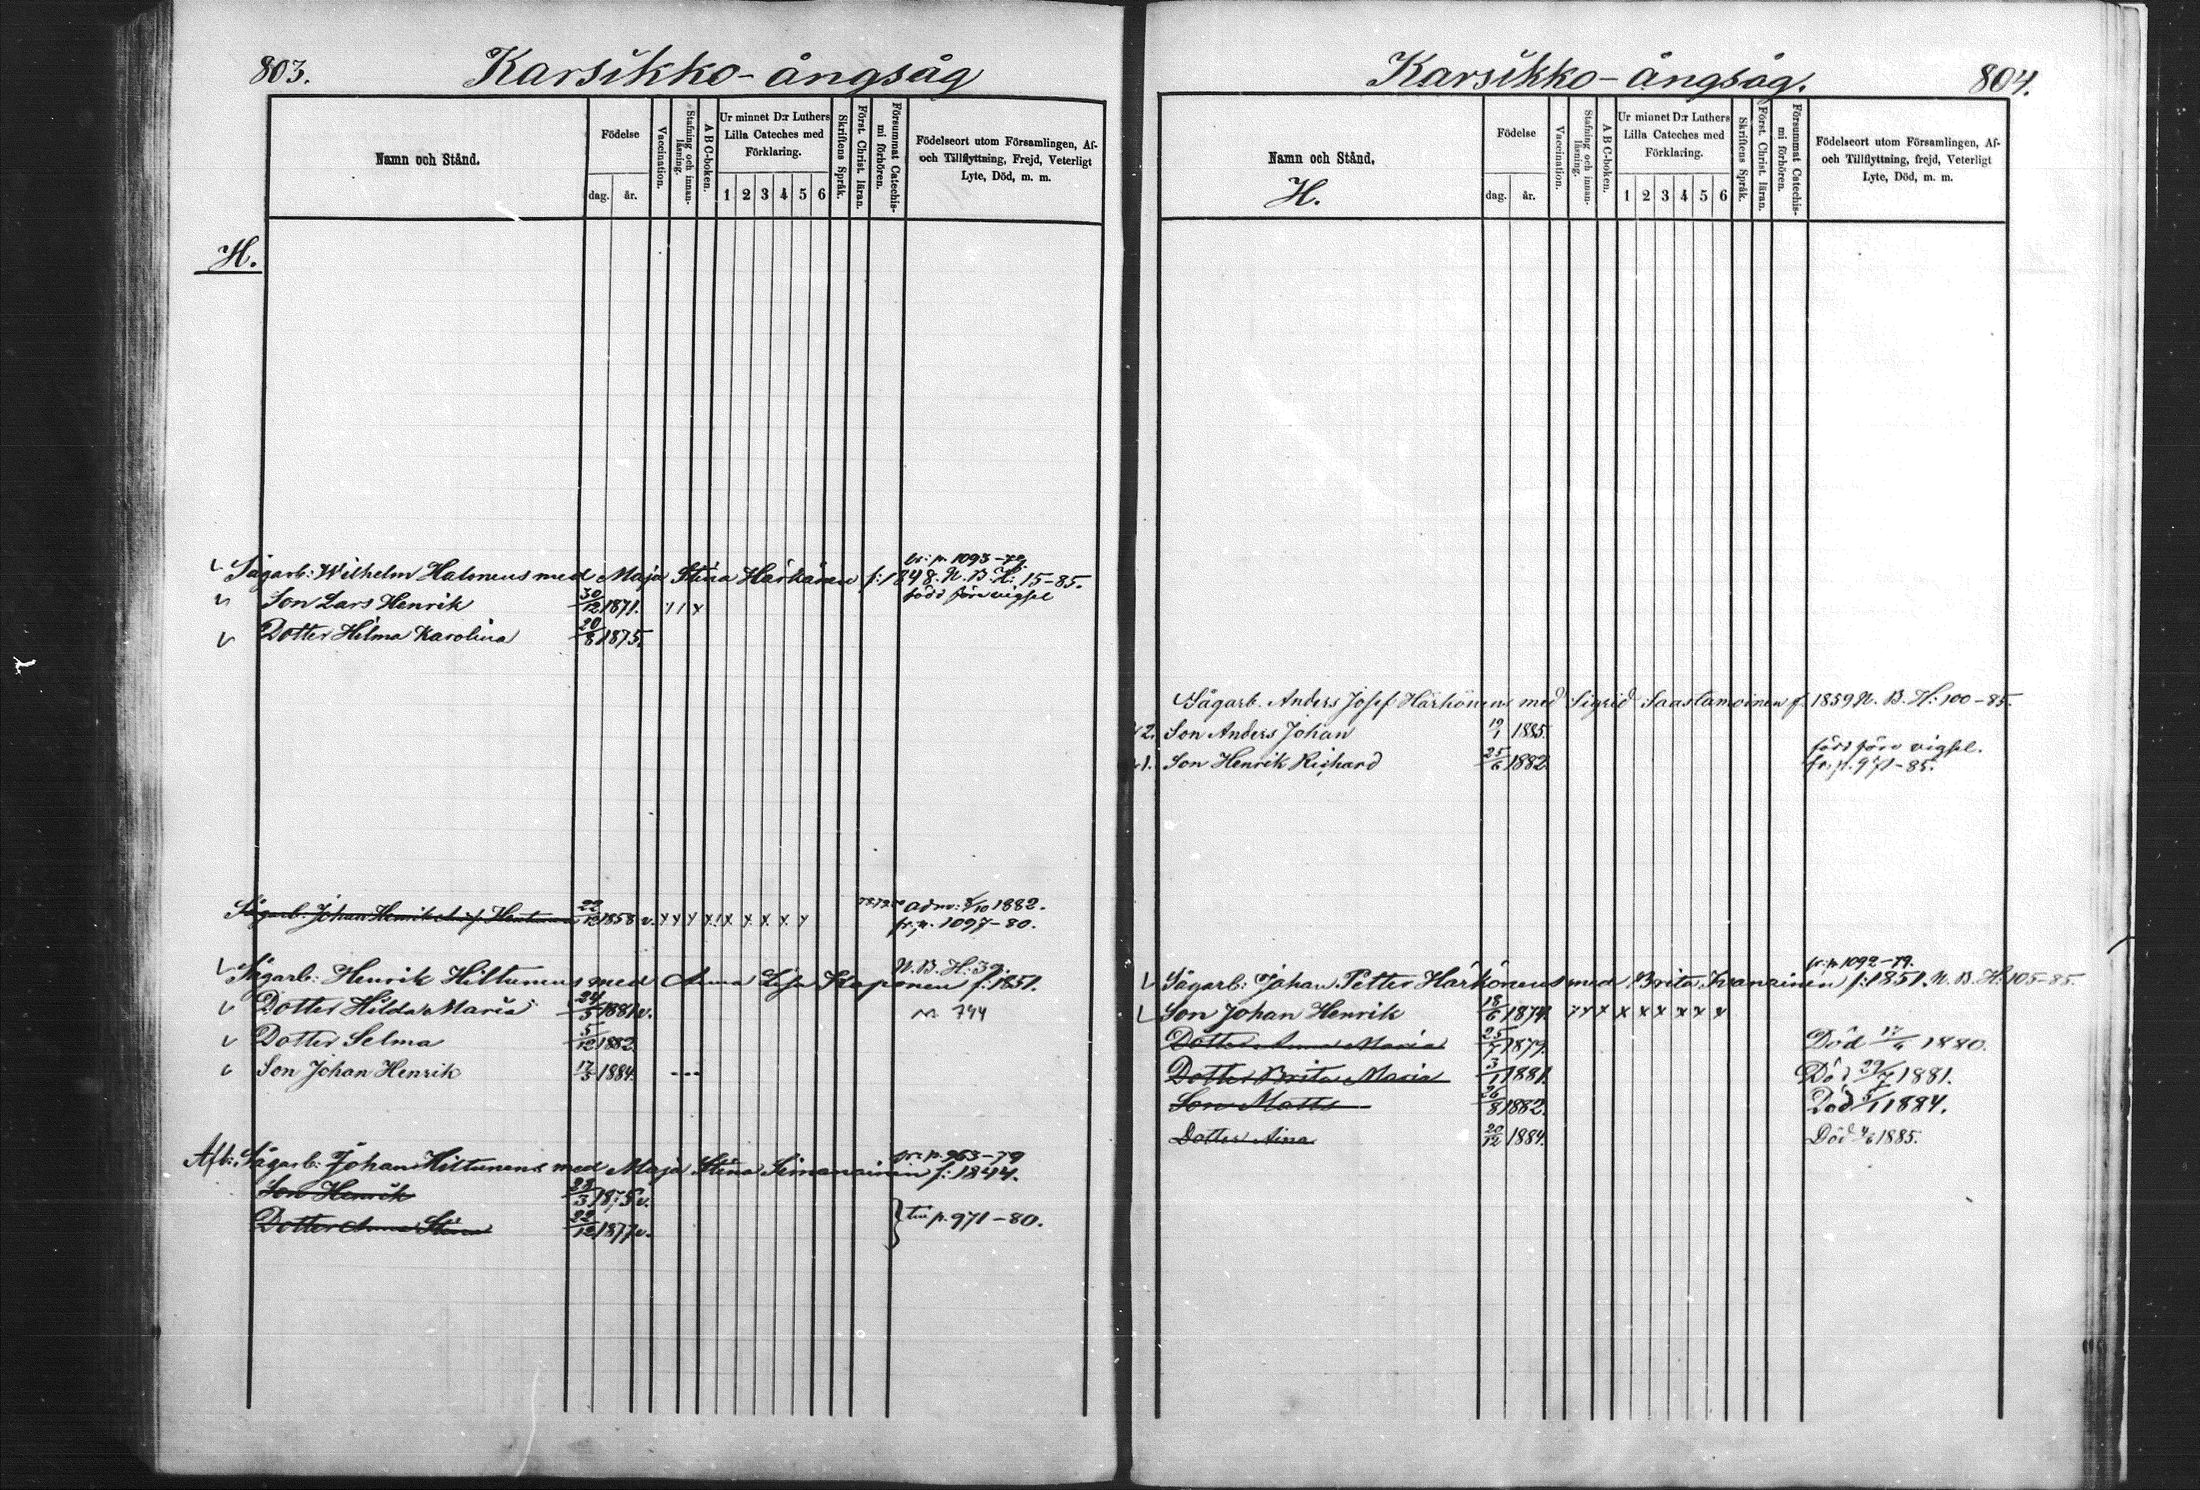 803.
Karsikko-ångsåg
Namn och Stånd.
Födelse
dag.
år.
Vaccination.
Stafning och innan-läsning.
A B C-boken.
Ur minnet D:r Luthers
Lilla Cateches med
Förklaring.
1 2 3 4 5 6
Skriftens Språk.
Först. Christ. läran.
Försummat Catechis-mi förhören.
Födelseort utom Församlingen, Af-
och Tillflyttning, Frejd, Veterligt
Lyte, Död, m. m.
H.
fr: p. 1093-79.
Sågarb: Wilhelm Halonens med Maja Stina Härkönen f: 1848. N. B. H: 15-85.
Son Lars Henrik 30/12 1871. född före vigsel
Dotter Hilma Karolina 20/8 1875.
Sågarb. Johan Henrik 22/12 1858 v. x x x x x x x x x adm: 1882.
fr: p. 1097-80.
N. B. H: 39.
Sågarb: Henrik Hiltunens med Anna Lisa f: 1851.
Dotter Hilda Maria 24/5 1881 v. 744
Dotter Selma 5/12 1882.
Son Johan Henrik 17/5 1884. ---
fr: p. 963-79
Afl: Sågarb: Johan Hiltunens med Maja Stina f: 1844.
Son Henrik 28/3 1875 v.
Dotter Anna Stina 22/12 1877 v. } till p. 971-80.
Karsikko-ångsåg.
804.
Namn och Stånd.
H.
Födelse
dag.
år.
Vaccination.
Stafning och innan-läsning.
A B C-boken.
Ur minnet D:r Luthers
Lilla Cateches med
Förklaring.
1 2 3 4 5 6
Skriftens Språk.
Först. Christ. läran.
Försummat Catechis-mi förhören.
Födelseort utom Församlingen, Af-
och Tillflyttning, frejd, Veterligt
Lyte, Död, m. m.
Sågarb. Anders Josef Härkönens med Sigrid Saastamoinen f. 1859 N. B. H: 100-85.
2. Son Anders Johan 19/1 1885.
född före vigsel.
1. Son Henrik Richard 25/6 1882. fr. p. 971-85.
fr: p. 1092-79.
Sågarb: Johan Petter Härkönens med Brita f: 1851. N. B. H: 105-85.
Son Johan Henrik 18/6 1874. x x x x x x x x x
Dotter Anna Maria 1879. Död 1880.
Dotter Brita Maria 3/1 1881. Död 29/7 1881.
Son Matts 26/8 1882. Död 1884.
Dotter Aina 20/12 1884. Död 4/6 1885.